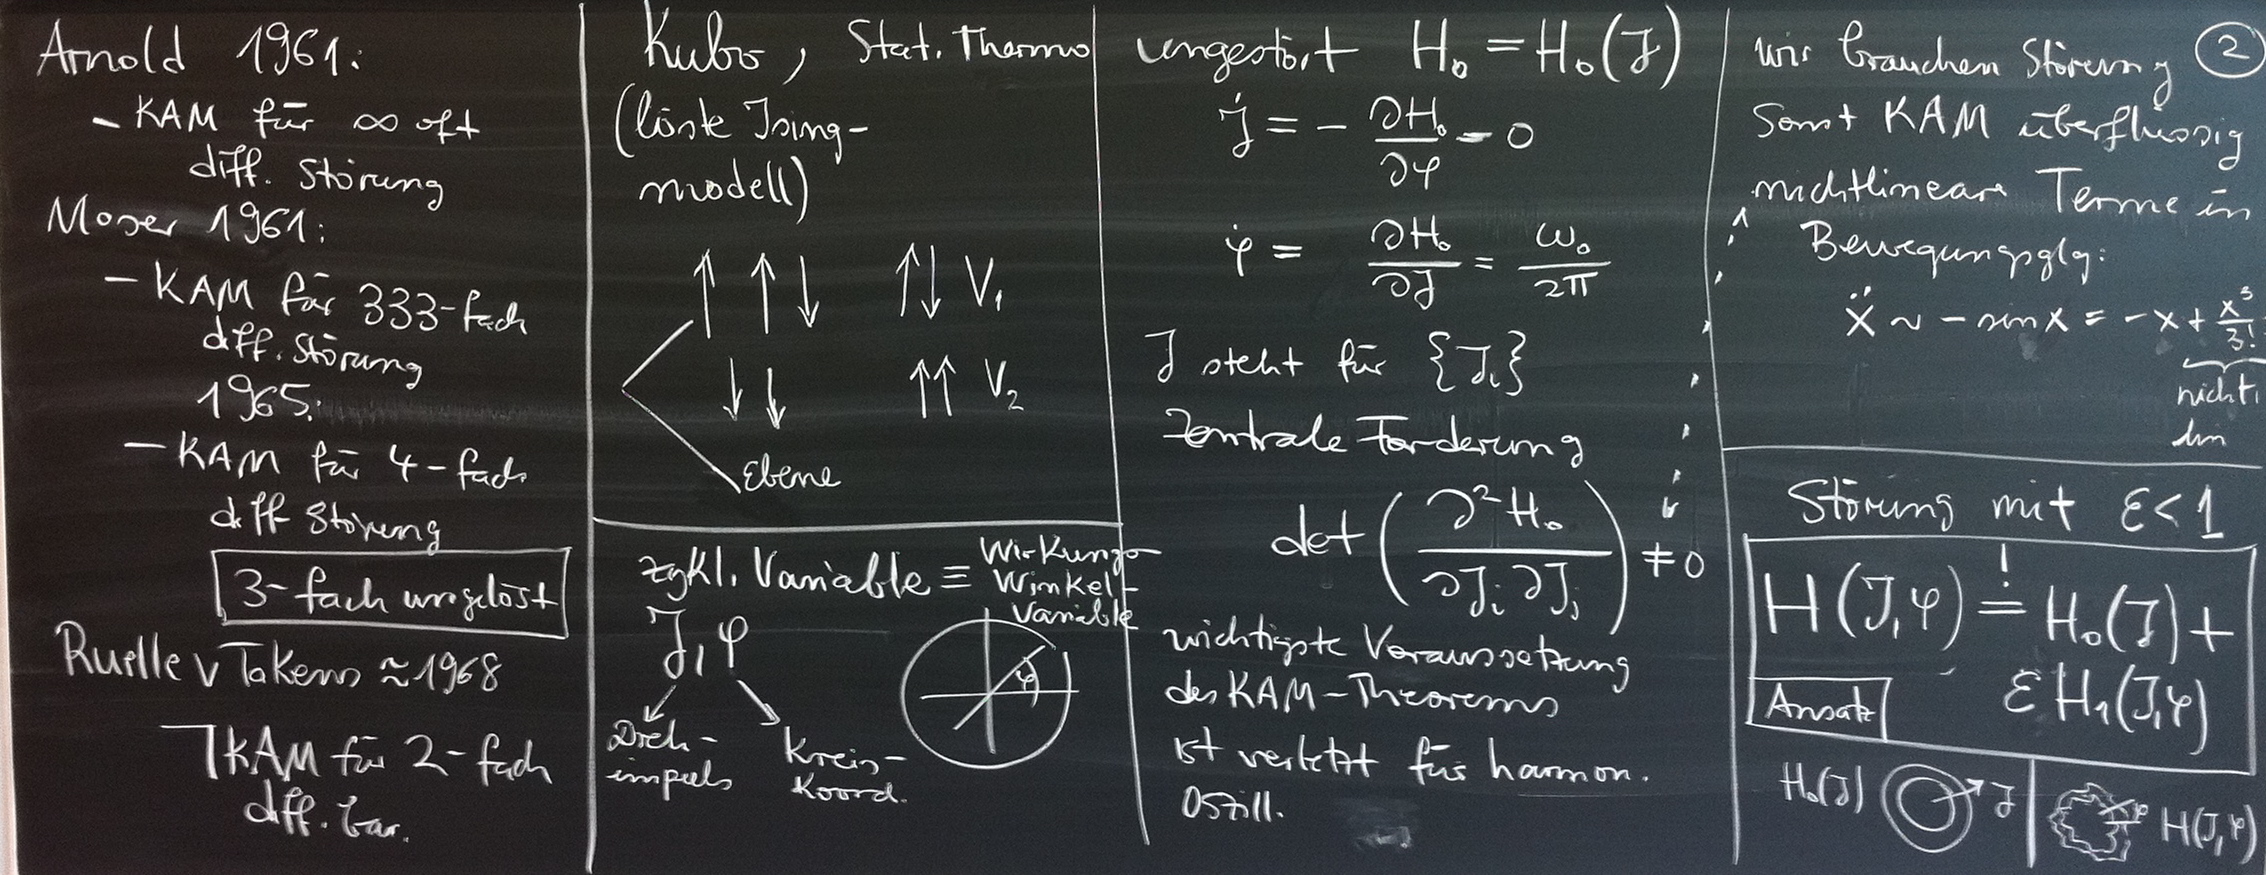 Arnold 1961:
- KAM für ∞ oft
diff. Störung
Moser 1961:
- KAM für 333-fach
diff. Störung
1965:
- KAM für 4-fach
diff Störung
3-fach ungelöst
Ruelle v Takens ≈ 1968
¬KAM für 2-fach
diff. bar.
Kubo, Stat. Thermo
(löste Ising-
modell)
↑ ↑↓ ↑↓ V₁
↓↓ ↑↑ V₂
Ebene
zykl. Variable ≡ Wirkungs-
Winkel-
Variable
J, φ
φ
Dreh-
impuls
Kreis-
Koord.
ungestört H₀ = H₀(J)
J̇ = - ∂H₀/∂φ = 0
φ̇ = ∂H₀/∂J = ω₀/2π
J steht für {Jᵢ}
Zentrale Forderung
det (∂²H₀/∂Jᵢ∂Jⱼ) ≠ 0
wichtigste Voraussetzung
des KAM-Theorems
ist verletzt für harmon.
Oszill.
wir brauchen Störung ②
Sonst KAM überflüssig
nichtlineare Terme in
Bewegungsglg:
ẍ ~ - sin x = -x + x³/3!
nicht
lin
Störung mit ε < 1
H(J,φ) =! H₀(J) +
ε H₁(J,φ)
Ansatz
H₀(J) J
φ H(J,φ)